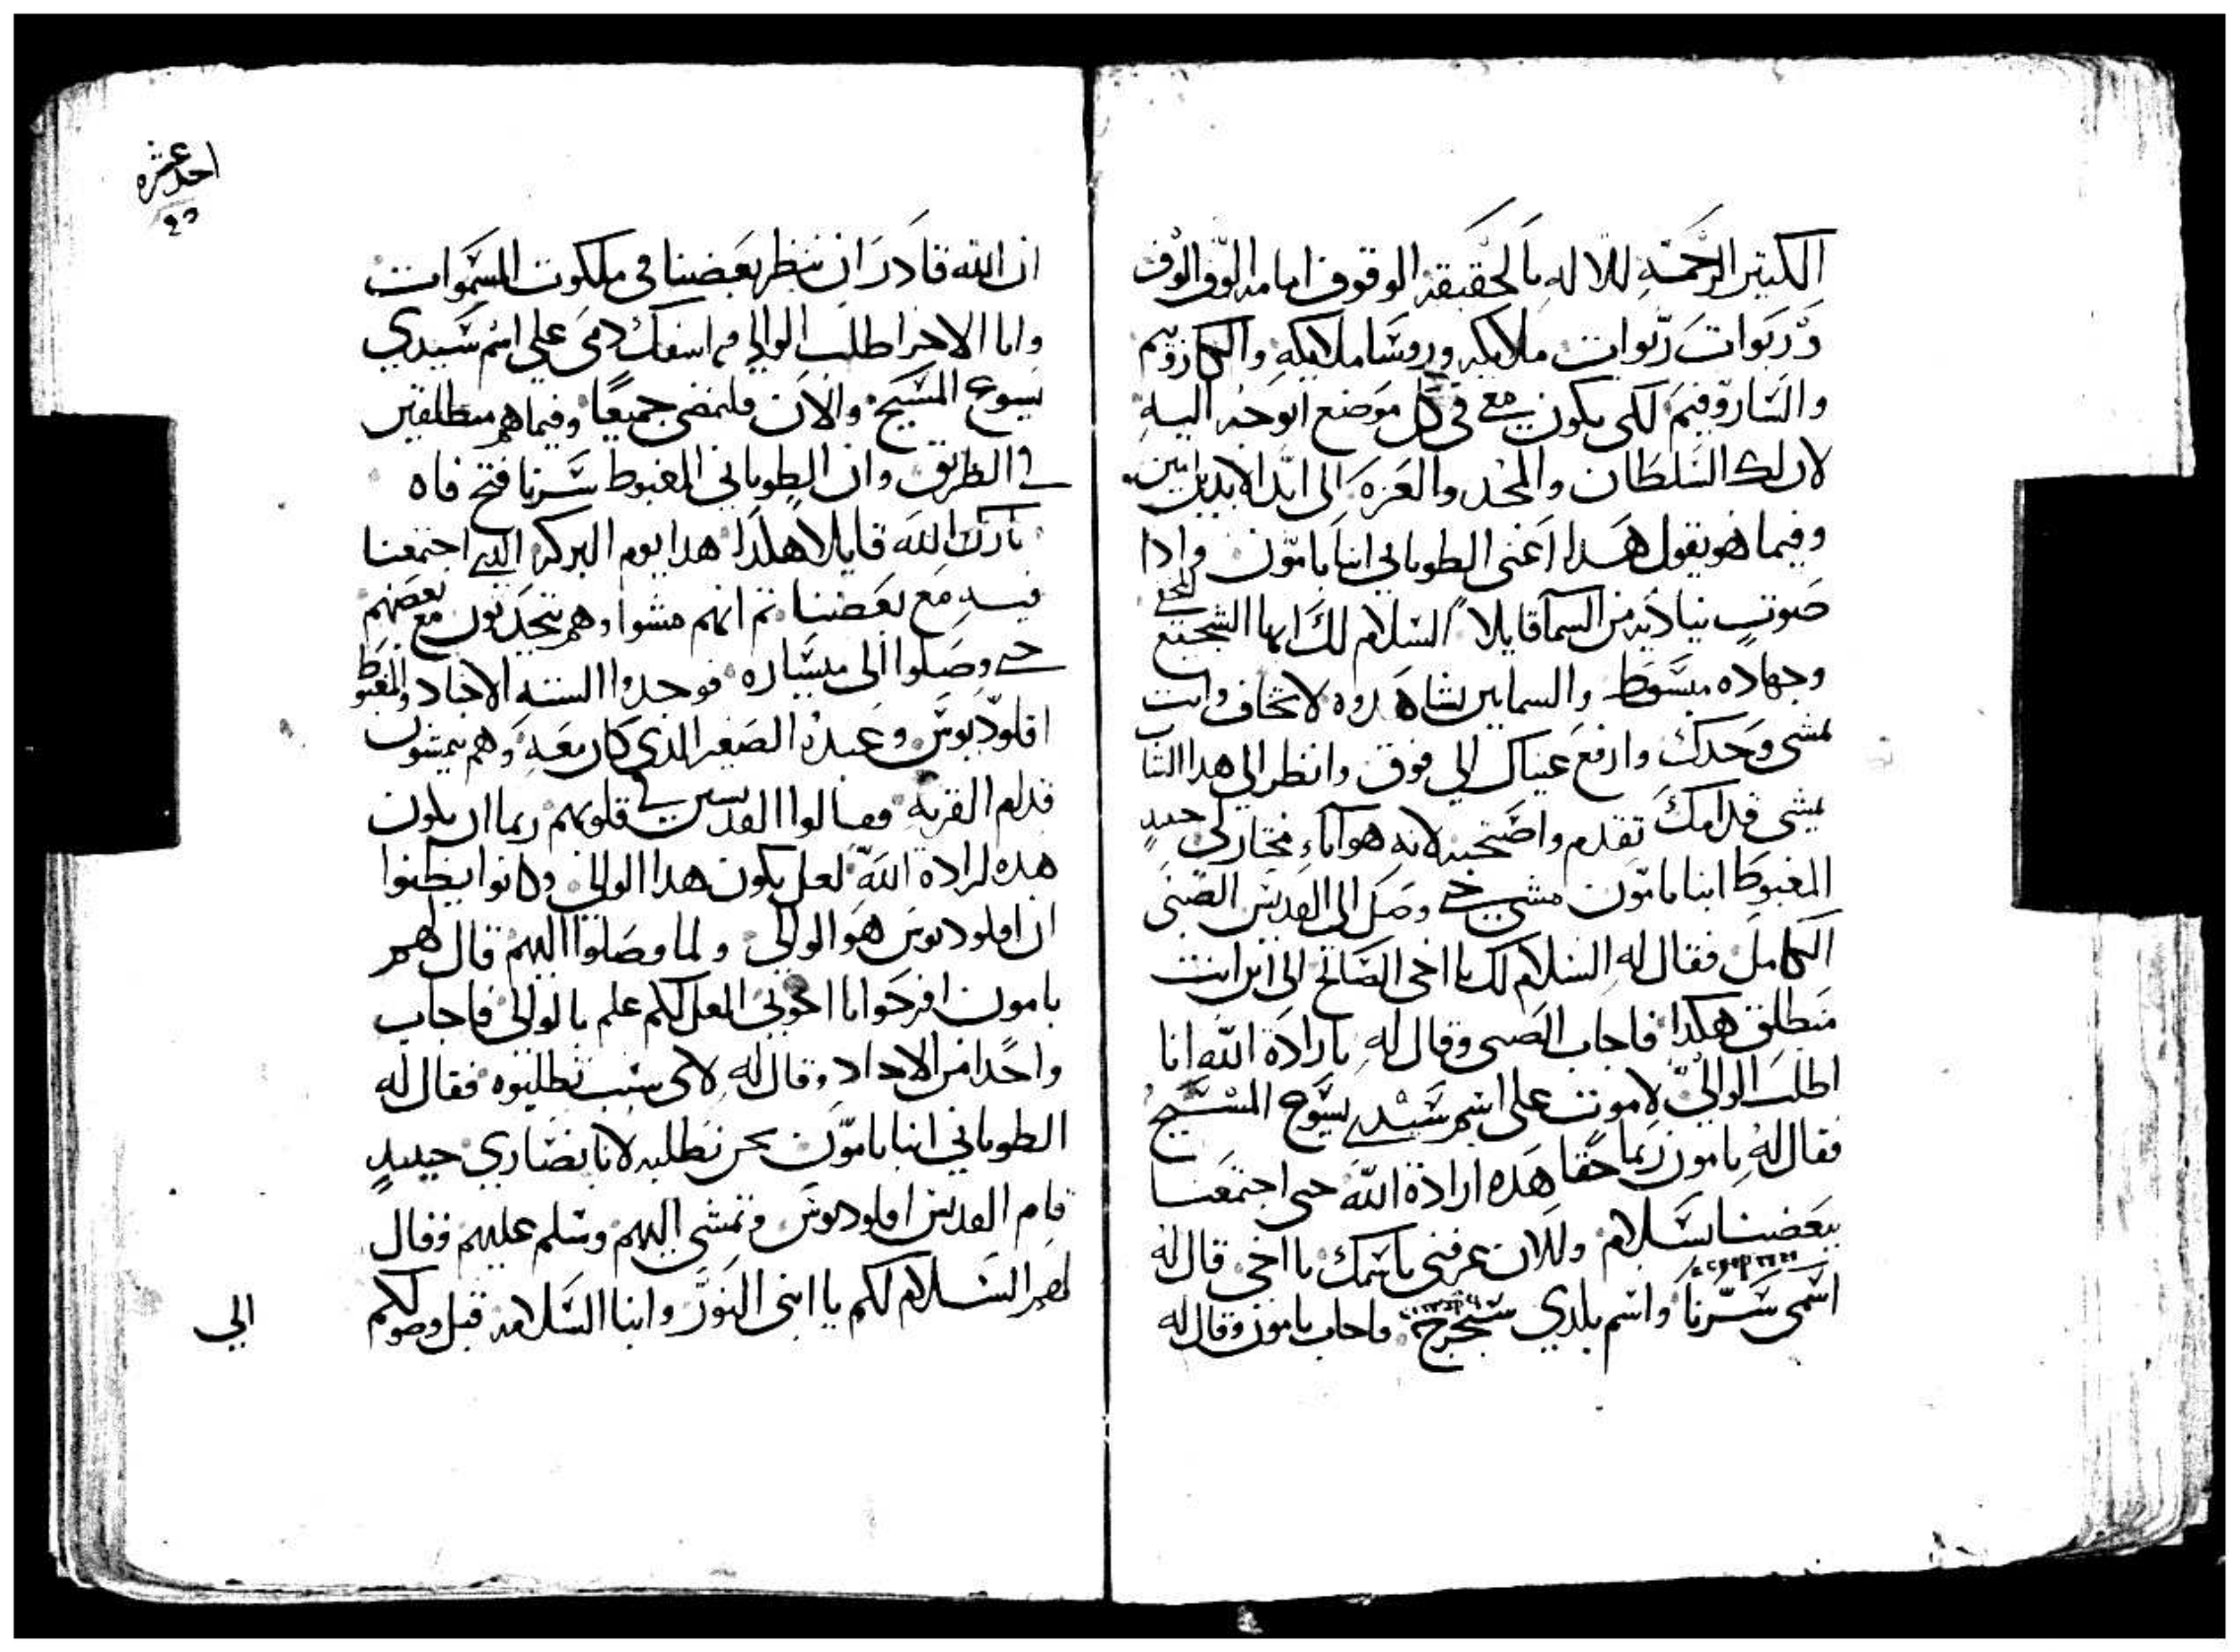 الكتير الرحمة للاله بالحقيقة الوقوف امامه الوف الوف
وربوات ربوات ملايكه وروسا ملايكه والكاروبيم
والساروفيم لكى يكون معى فى كل موضع اتوجه اليه
لان لك السلطان والمجد والعزه الى ابد الابدين امين
وفيما هو يقول هدا اعنى الطوبانى انبا بامون وادا
صوت يناديه من السما قايلا السلام لك ايها الشجيع
وجهاده مبسوط والسمايين تشاهدوه لا تخاف وانت
تمشى وحدك وارفع عيناك الى فوق وانظر الى هدا الشاب
يمشى قدامك تقدم واصحبه لانه هو اناء مختار لى حينيد
المغبوط انبا بامون مشى حتى وصل الى القديس الصبى
الكامل فقال له السلام لك يا اخى الصالح الى اين انت
منطلق هكدا فاجاب الصبى وقال له بارادة الله انا
اطلب الوالى لاموت على اسم سيدى يسوع المسيح
فقال له بامون ربما حقا هده ارادة الله حتى اجتمعنا
ببعضنا بسلام وللان عرفنى باسمك يا اخى قال له
اسمى سرنا واسم بلدى فاجاب بامون وقال له
احد عشره
ان الله قادر ان ننظر بعضنا فى ملكوت السموات
وانا الاخر اطلب الوالى فى اسفك دمى على اسم سيدي
يسوع المسيح والان فلنمضى جميعًا وفيما هم منطلقين
فى الطريق وان الطوبانى المغبوط سرنا فتح فاه
بارك الله قايلا هكدا هدا يوم البركه الدى اجتمعنا
فيه مع بعضنا تم انهم مشوا وهم يتحدتون مع بعضهم
حتى وصلوا الى فوجدوا السته الاجناد والمغبوط
اقلوديوس وعبده الصغير الذي كان معه وهم يمشون
قدام القريه فقالوا القديسين فى قلوبهم ربما ان يكون
هده ارادة الله لعل يكون هدا الوالى وكانوا يظنوا
ان اقلوديوس هو الوالى ولما وصلوا اليهم قال لهم
بامون افرحوا يا اخوتى لعل لكم علم بالوالى فاجاب
واحدا من الاجناد وقال له لاى سبب تطلبوه فقال له
الطوبانى انبا بامون نحن نطلبه لاننا نصاري حينيدٍ
قام القديس اقلوديوس وتمشى اليهم وسلم عليهم وقال
لهم السلام لكم يا ابنى النور وابنا السلامه قبل وصولكم
الي